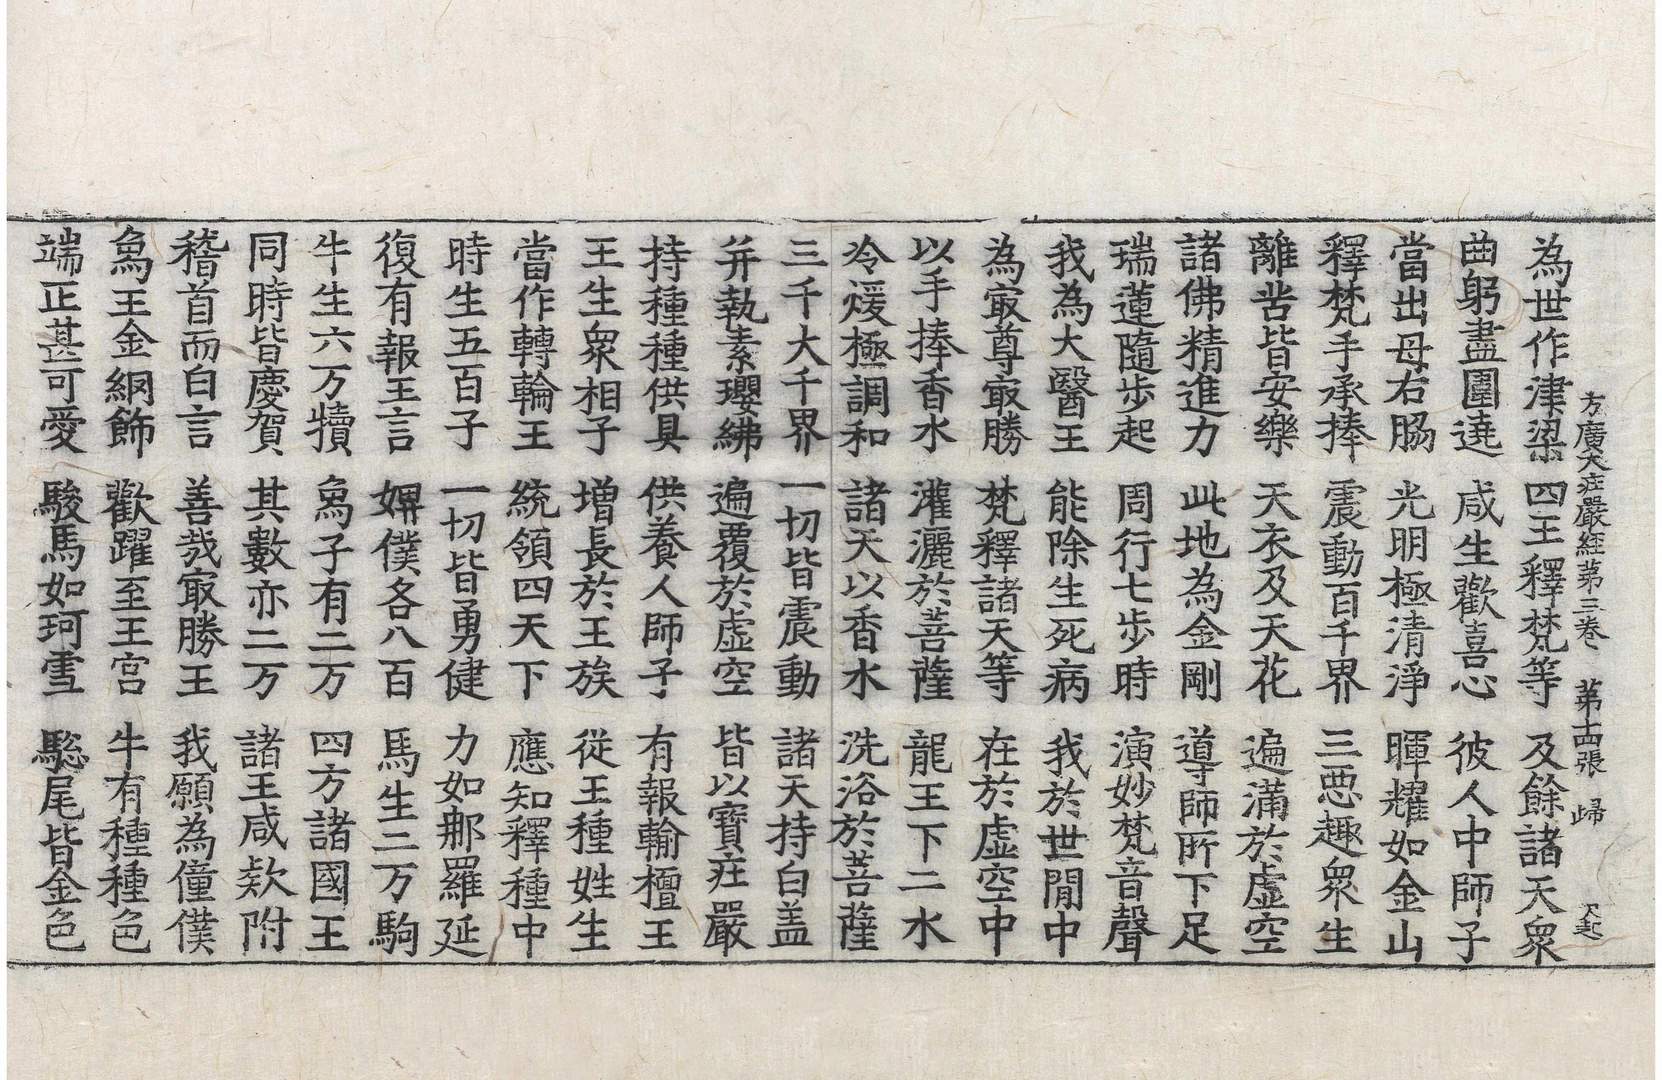 方廣大庄嚴経苐三卷 苐十四張 㱕 天起
為世作津梁 四王釋梵等 及餘諸天衆
曲躬盡圍遶 咸生歡喜心 彼人中師子
當出母右脇 光明極清淨 暉耀如金山
釋梵手承捧 震動百千界 三惡趣衆生
離苦皆安樂 天衣及天花 遍滿於虛空
諸佛精進力 此地為金剛 導師所下足
瑞蓮隨步起 周行七步時 演妙梵音聲
我為大醫王 能除生死病 我於世閒中
為㝡尊㝡勝 梵釋諸天等 在於虛空中
以手捧香水 灌灑於菩薩 龍王下二水
冷煖極調和 諸天以香水 洗浴於菩薩
三千大千界 一切皆震動 諸天持白盖
并執素瓔紼 遍覆於虛空 皆以寶庄嚴
持種種供具 供養人師子 有報輸檀王
王生衆相子 增長於王族 従王種姓生
當作轉輪王 統領四天下 應知釋種中
時生五百子 一切皆勇健 力如那羅延
復有報王言 婢僕各八百 馬生二万駒
牛生六万犢 𠌥子有二万 四方諸國王
同時皆慶賀 其數亦二万 諸王咸欵附
稽首而白言 善㢤㝡勝王 我願為僮僕
𠌥王金網飾 歡躍至王宮 牛有種種色
端正甚可愛 駿馬如珂雪 騣尾皆金色